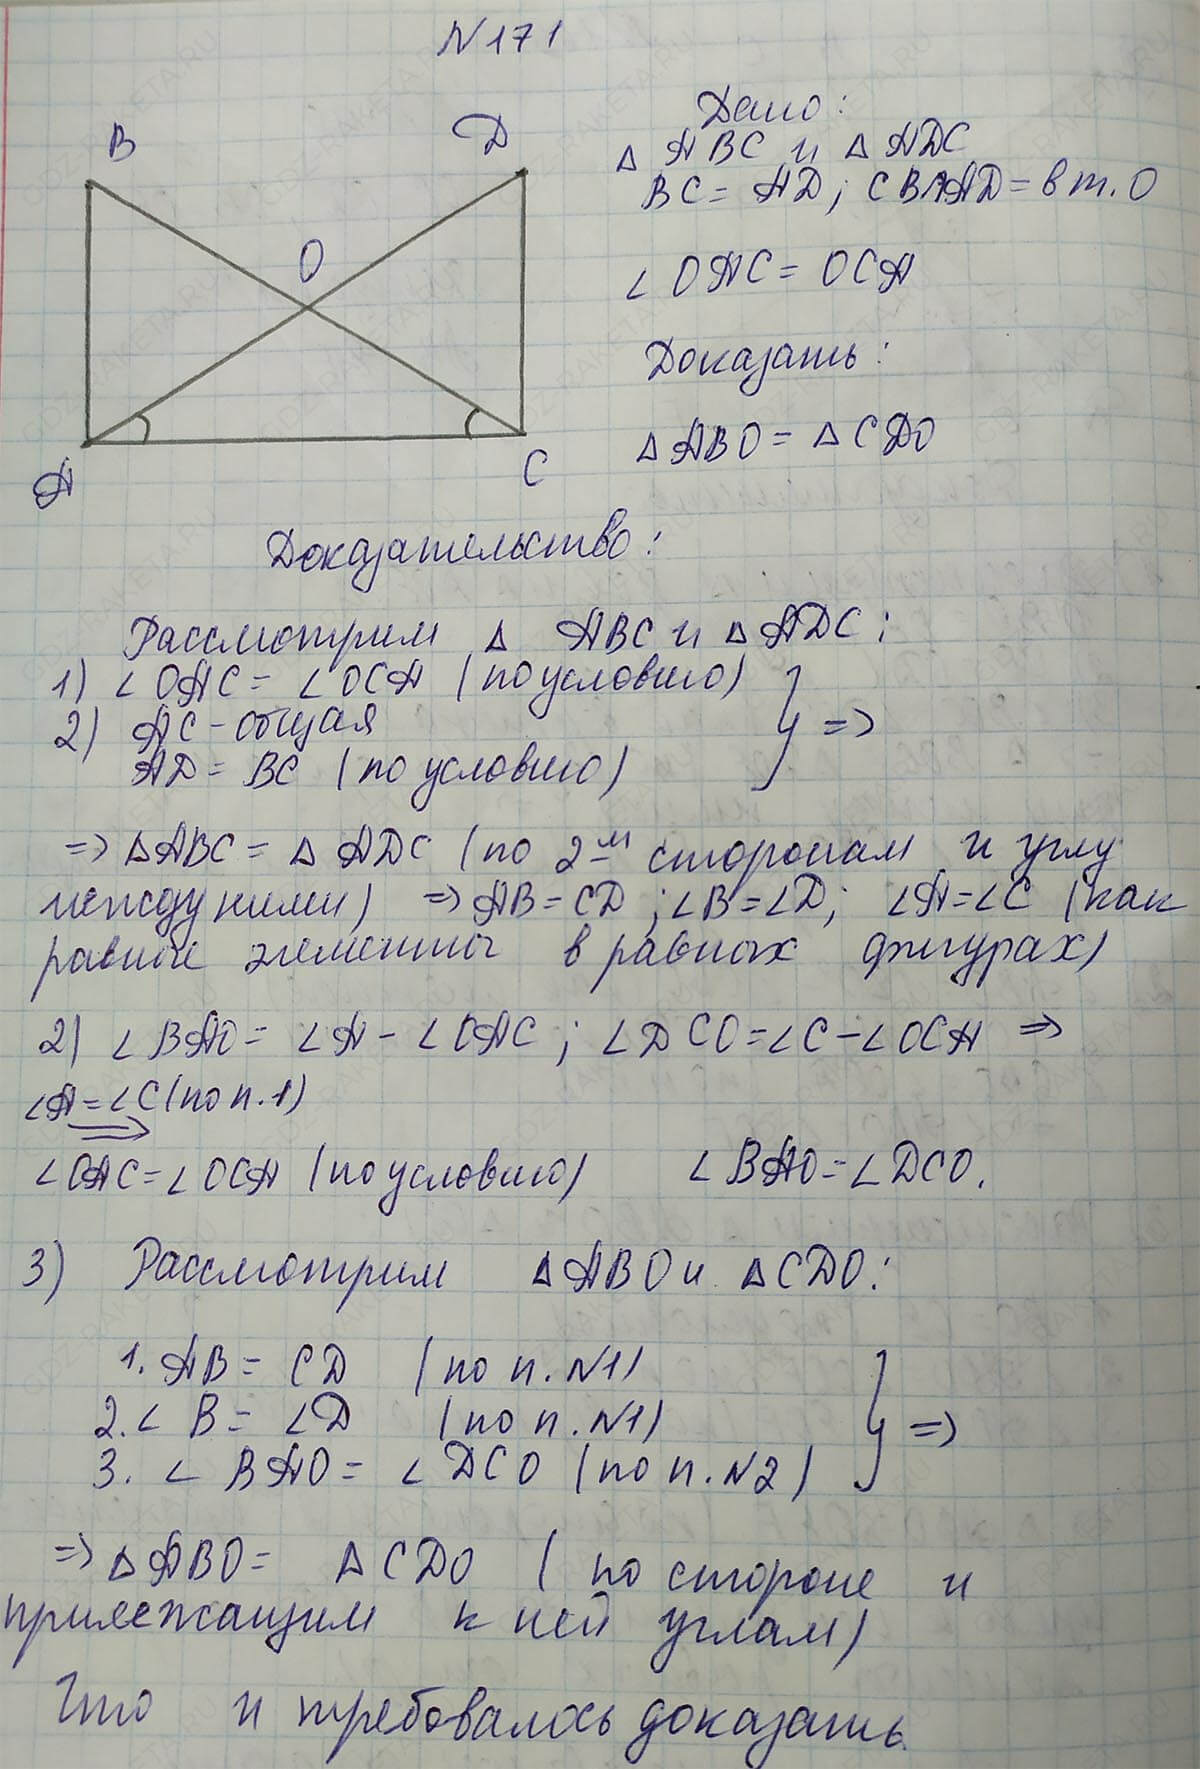 N 171
B
D
O
A
C
Дано:
△ ABC и △ ADC
BC = AD; CB∩AD = в т. O
∠ OAC = OCA
Доказать:
△ ABO = △ CDO
Доказательство:
Рассмотрим △ ABC и △ ADC:
1) ∠ OAC = ∠ OCA (по условию)
2) AC - общая
AD = BC (по условию)
} =>
=> △ ABC = △ ADC (по 2-м сторонам и углу
между ними) => AB = CD; ∠B = ∠D; ∠A = ∠C (как
равные элементы в равных фигурах)
2) ∠ BAO = ∠A - ∠OAC; ∠DCO = ∠C - ∠OCA =>
∠A = ∠C (по п. 1)
=>
∠OAC = ∠OCA (по условию) ∠ BAO = ∠DCO.
3) Рассмотрим △ ABO и △ CDO:
1. AB = CD (по п. N1)
2. ∠ B = ∠D (по п. N1)
3. ∠ BAO = ∠ DCO (по п. N2)
} =>
=> △ ABO = △ CDO (по стороне и
прилежащим к ней углам)
Что и требовалось доказать.